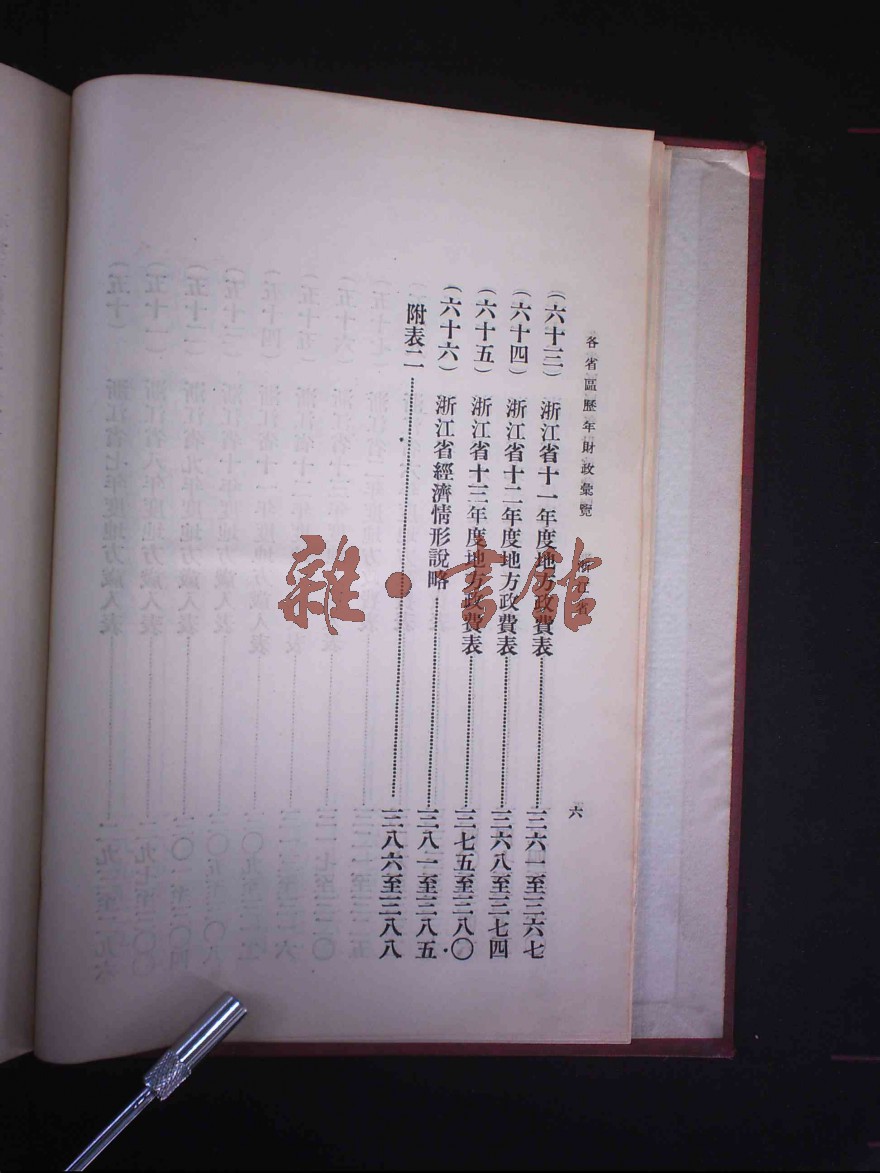 各省區歷年財政彙覽 浙江省 六
(六十三) 浙江省十一年度地方政費表……三六一至三六七
(六十四) 浙江省十二年度地方政費表……三六八至三七四
(六十五) 浙江省十三年度地方政費表……三七五至三八〇
(六十六) 浙江省經濟情形說略……三八一至三八五
附表二……三八六至三八八
雜·書館